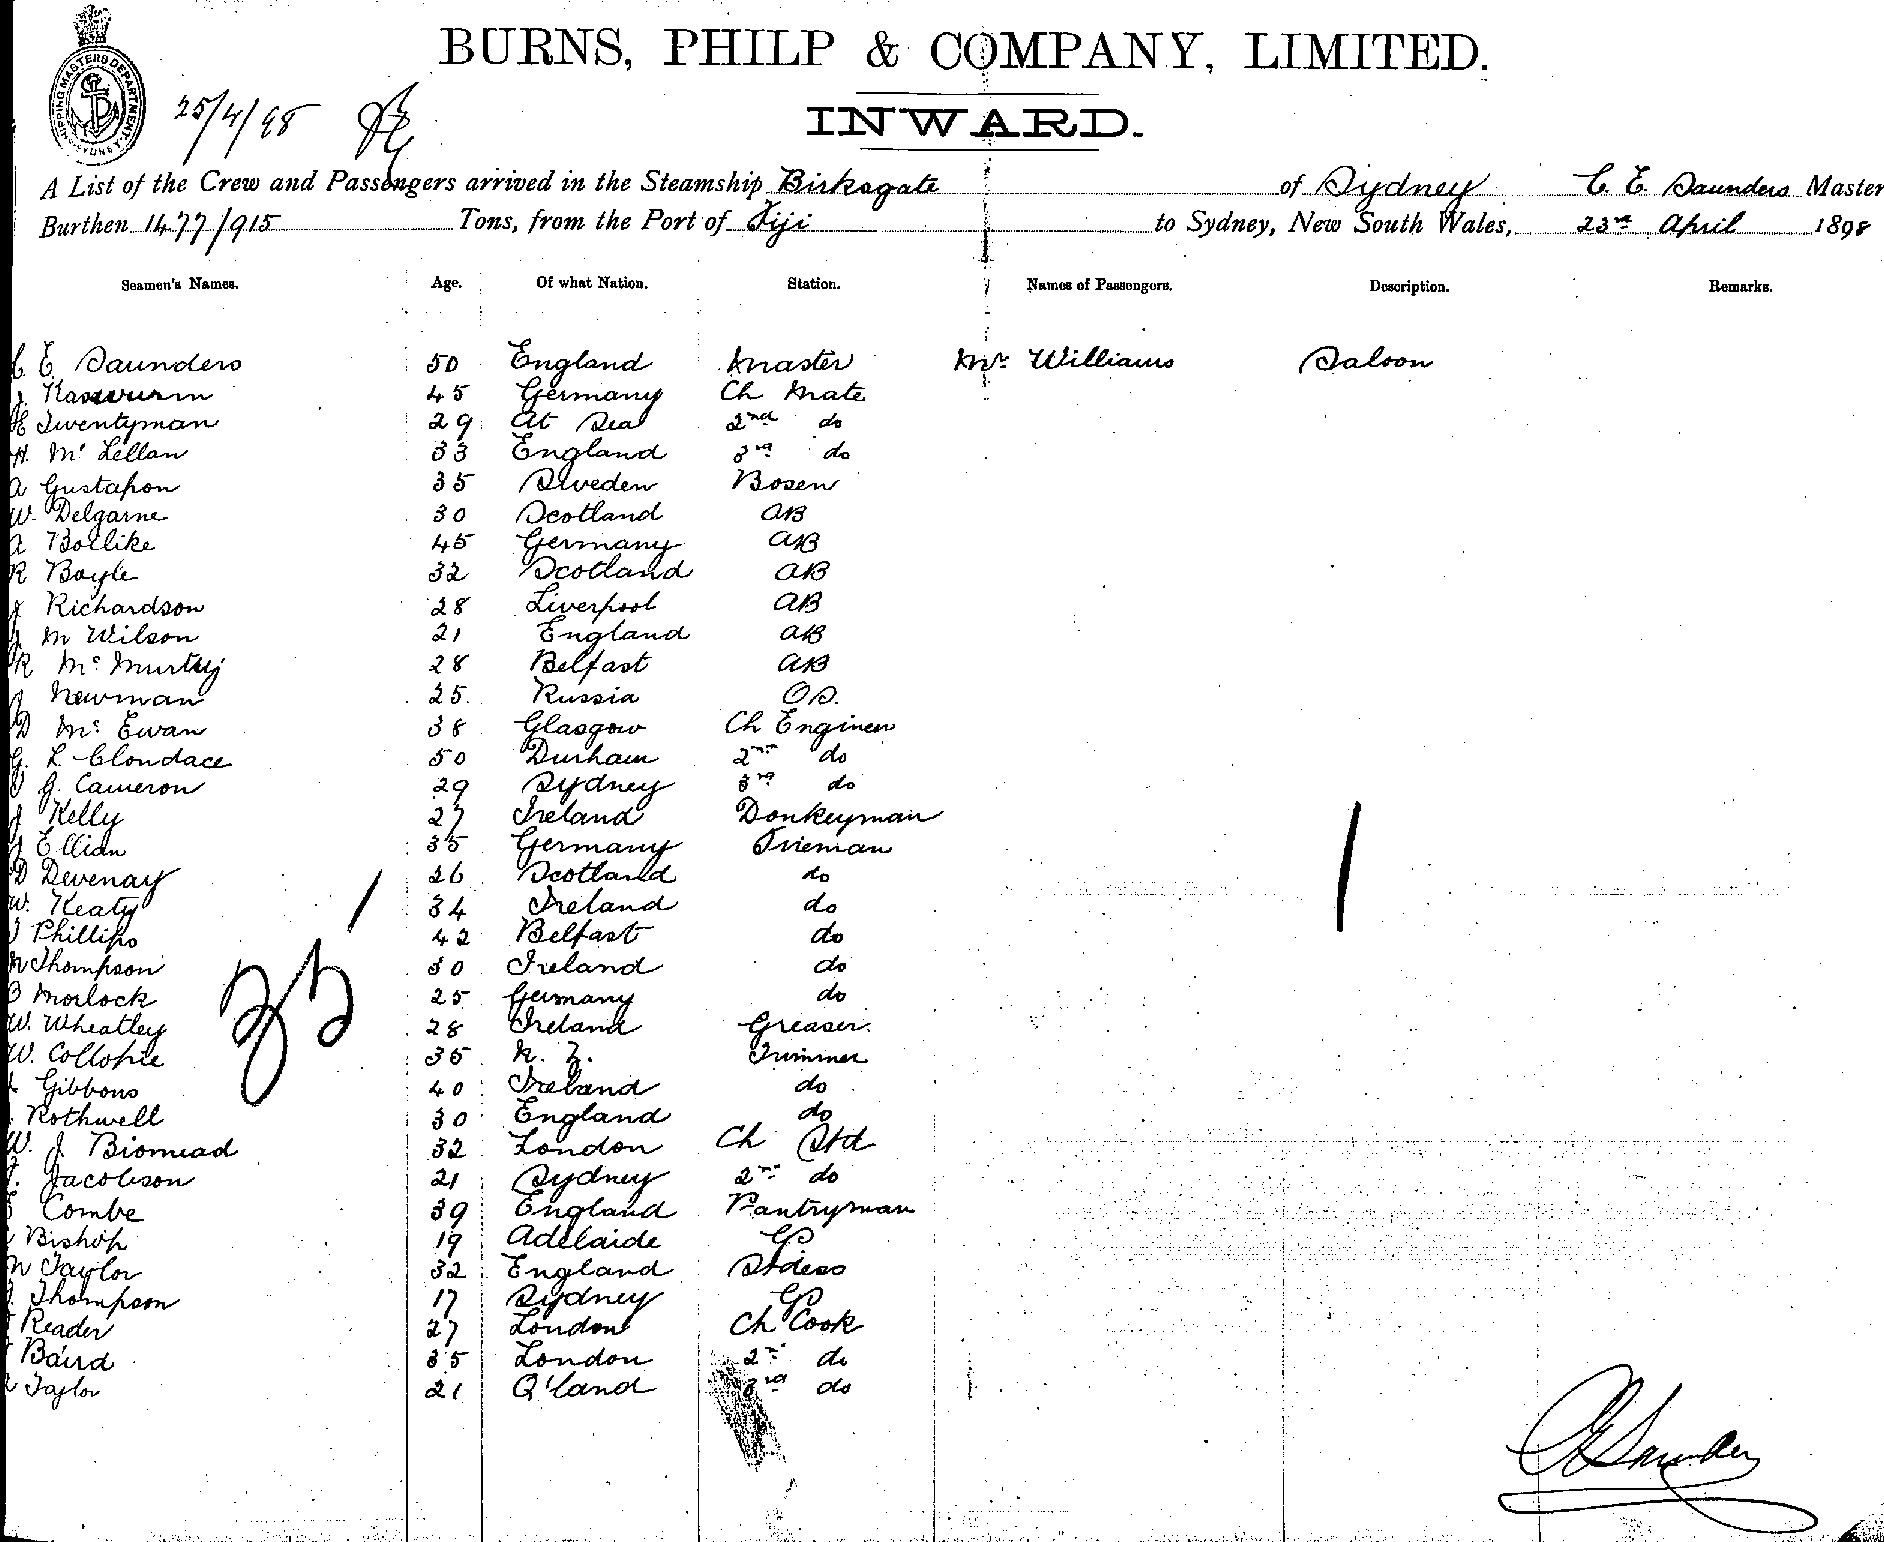 BURNS, PHILP & COMPANY, LIMITED.
INWARD.
SHIPPING MASTERS DEPARTMENT SYDNEY
25/4/98
A List of the Crew and Passengers arrived in the Steamship Birksgate of Sydney C E Saunders Master
Burthen 1477/915 Tons, from the Port of Fiji to Sydney, New South Wales, 23rd April 1898
Seamen's Names. Age. Of what Nation. Station. Names of Passengers. Description. Remarks.
C E Saunders 50 England Master Mr Williams Saloon
45 Germany Ch Mate
Twentyman 29 At Sea 2nd do
H. Mc Lellan 33 England 3rd do
A Gustafson 35 Sweden Bosen
W. Delgarne 30 Scotland AB
A 45 Germany AB
R Boyle 32 Scotland AB
J Richardson 28 Liverpool AB
J M Wilson 21 England AB
R Mc Murtry 28 Belfast AB
J Newman 25 Russia OS.
D Mc Ewan 38 Glasgow Ch Engineer
G. L Clondace 50 Durham 2nd do
J. Cameron 29 Sydney 3rd do
J Kelly 27 Ireland Donkeyman
J Ellian 35 Germany Fireman
D Devenay 26 Scotland do
W. Keaty 34 Ireland do
J Phillips 42 Belfast do
Thompson 30 Ireland do
B Morlock 25 Germany do
W. Wheatley 28 Ireland Greaser.
W. Collopie 35 N. Z. Trimmer
Gibbons 40 Ireland do
Rothwell 30 England do
W. J. Biomead 32 London Ch Std
Jacobson 21 Sydney 2nd do
Combe 39 England Pantryman
Bishop 19 Adelaide
Taylor 32 England Stdess
Thompson 17 Sydney
Reader 27 London Ch Cook
Baird 35 London 2nd do
Taylor 21 Q'land 3rd do
35
1
C E Saunders